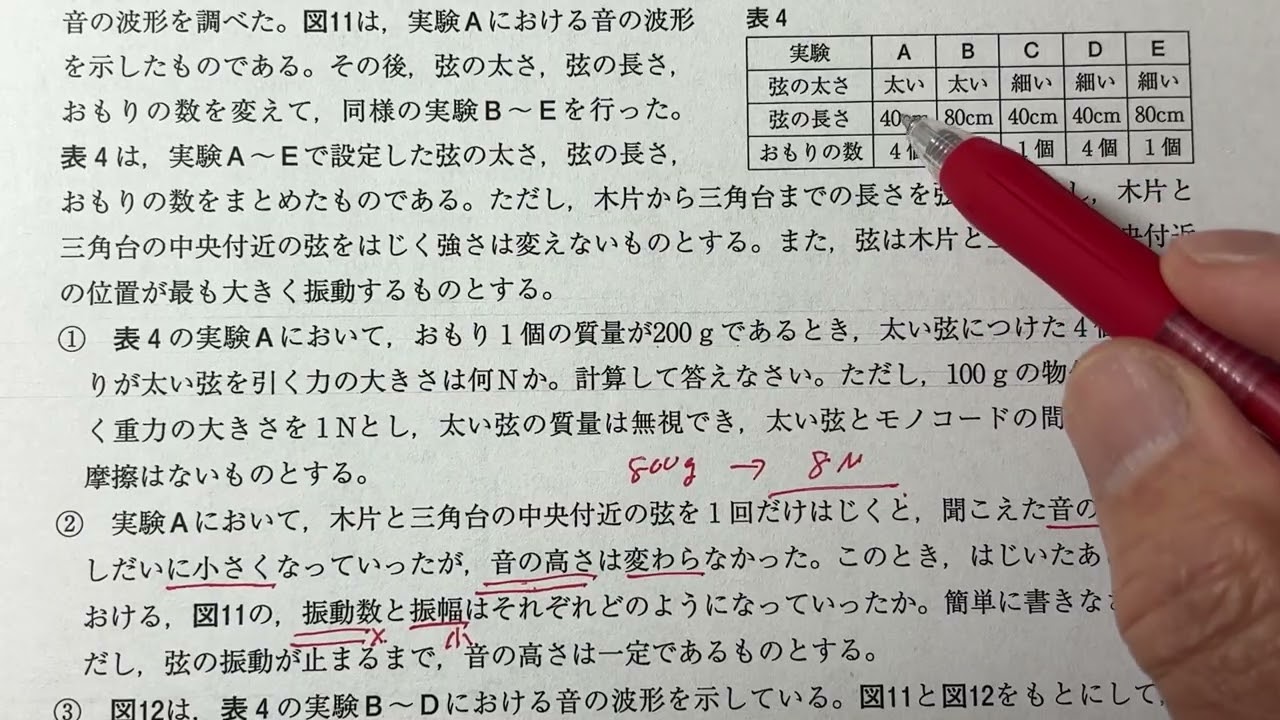 音の波形を調べた。図11は，実験Aにおける音の波形
を示したものである。その後，弦の太さ，弦の長さ，
おもりの数を変えて，同様の実験B～Eを行った。
表4は，実験A～Eで設定した弦の太さ，弦の長さ，
おもりの数をまとめたものである。ただし，木片から三角台までの長さを弦 し，木片と
三角台の中央付近の弦をはじく強さは変えないものとする。また，弦は木片と 央付近
の位置が最も大きく振動するものとする。
表4
実験 A B C D E
弦の太さ 太い 太い 細い 細い 細い
弦の長さ 40cm 80cm 40cm 40cm 80cm
おもりの数 4個 1個 4個 1個
① 表4の実験Aにおいて，おもり1個の質量が200gであるとき，太い弦につけた4個
りが太い弦を引く力の大きさは何Nか。計算して答えなさい。ただし，100gの物
く重力の大きさを1Nとし，太い弦の質量は無視でき，太い弦とモノコードの間
摩擦はないものとする。
800g → 8N
② 実験Aにおいて，木片と三角台の中央付近の弦を1回だけはじくと，聞こえた音の
しだいに小さくなっていったが，音の高さは変わらなかった。このとき，はじいたあ
おける，図11の，振動数と振幅はそれぞれどのようになっていったか。簡単に書きな
× 小
だし，弦の振動が止まるまで，音の高さは一定であるものとする。
③ 図12は，表4の実験B～Dにおける音の波形を示している。図11と図12をもとにして，